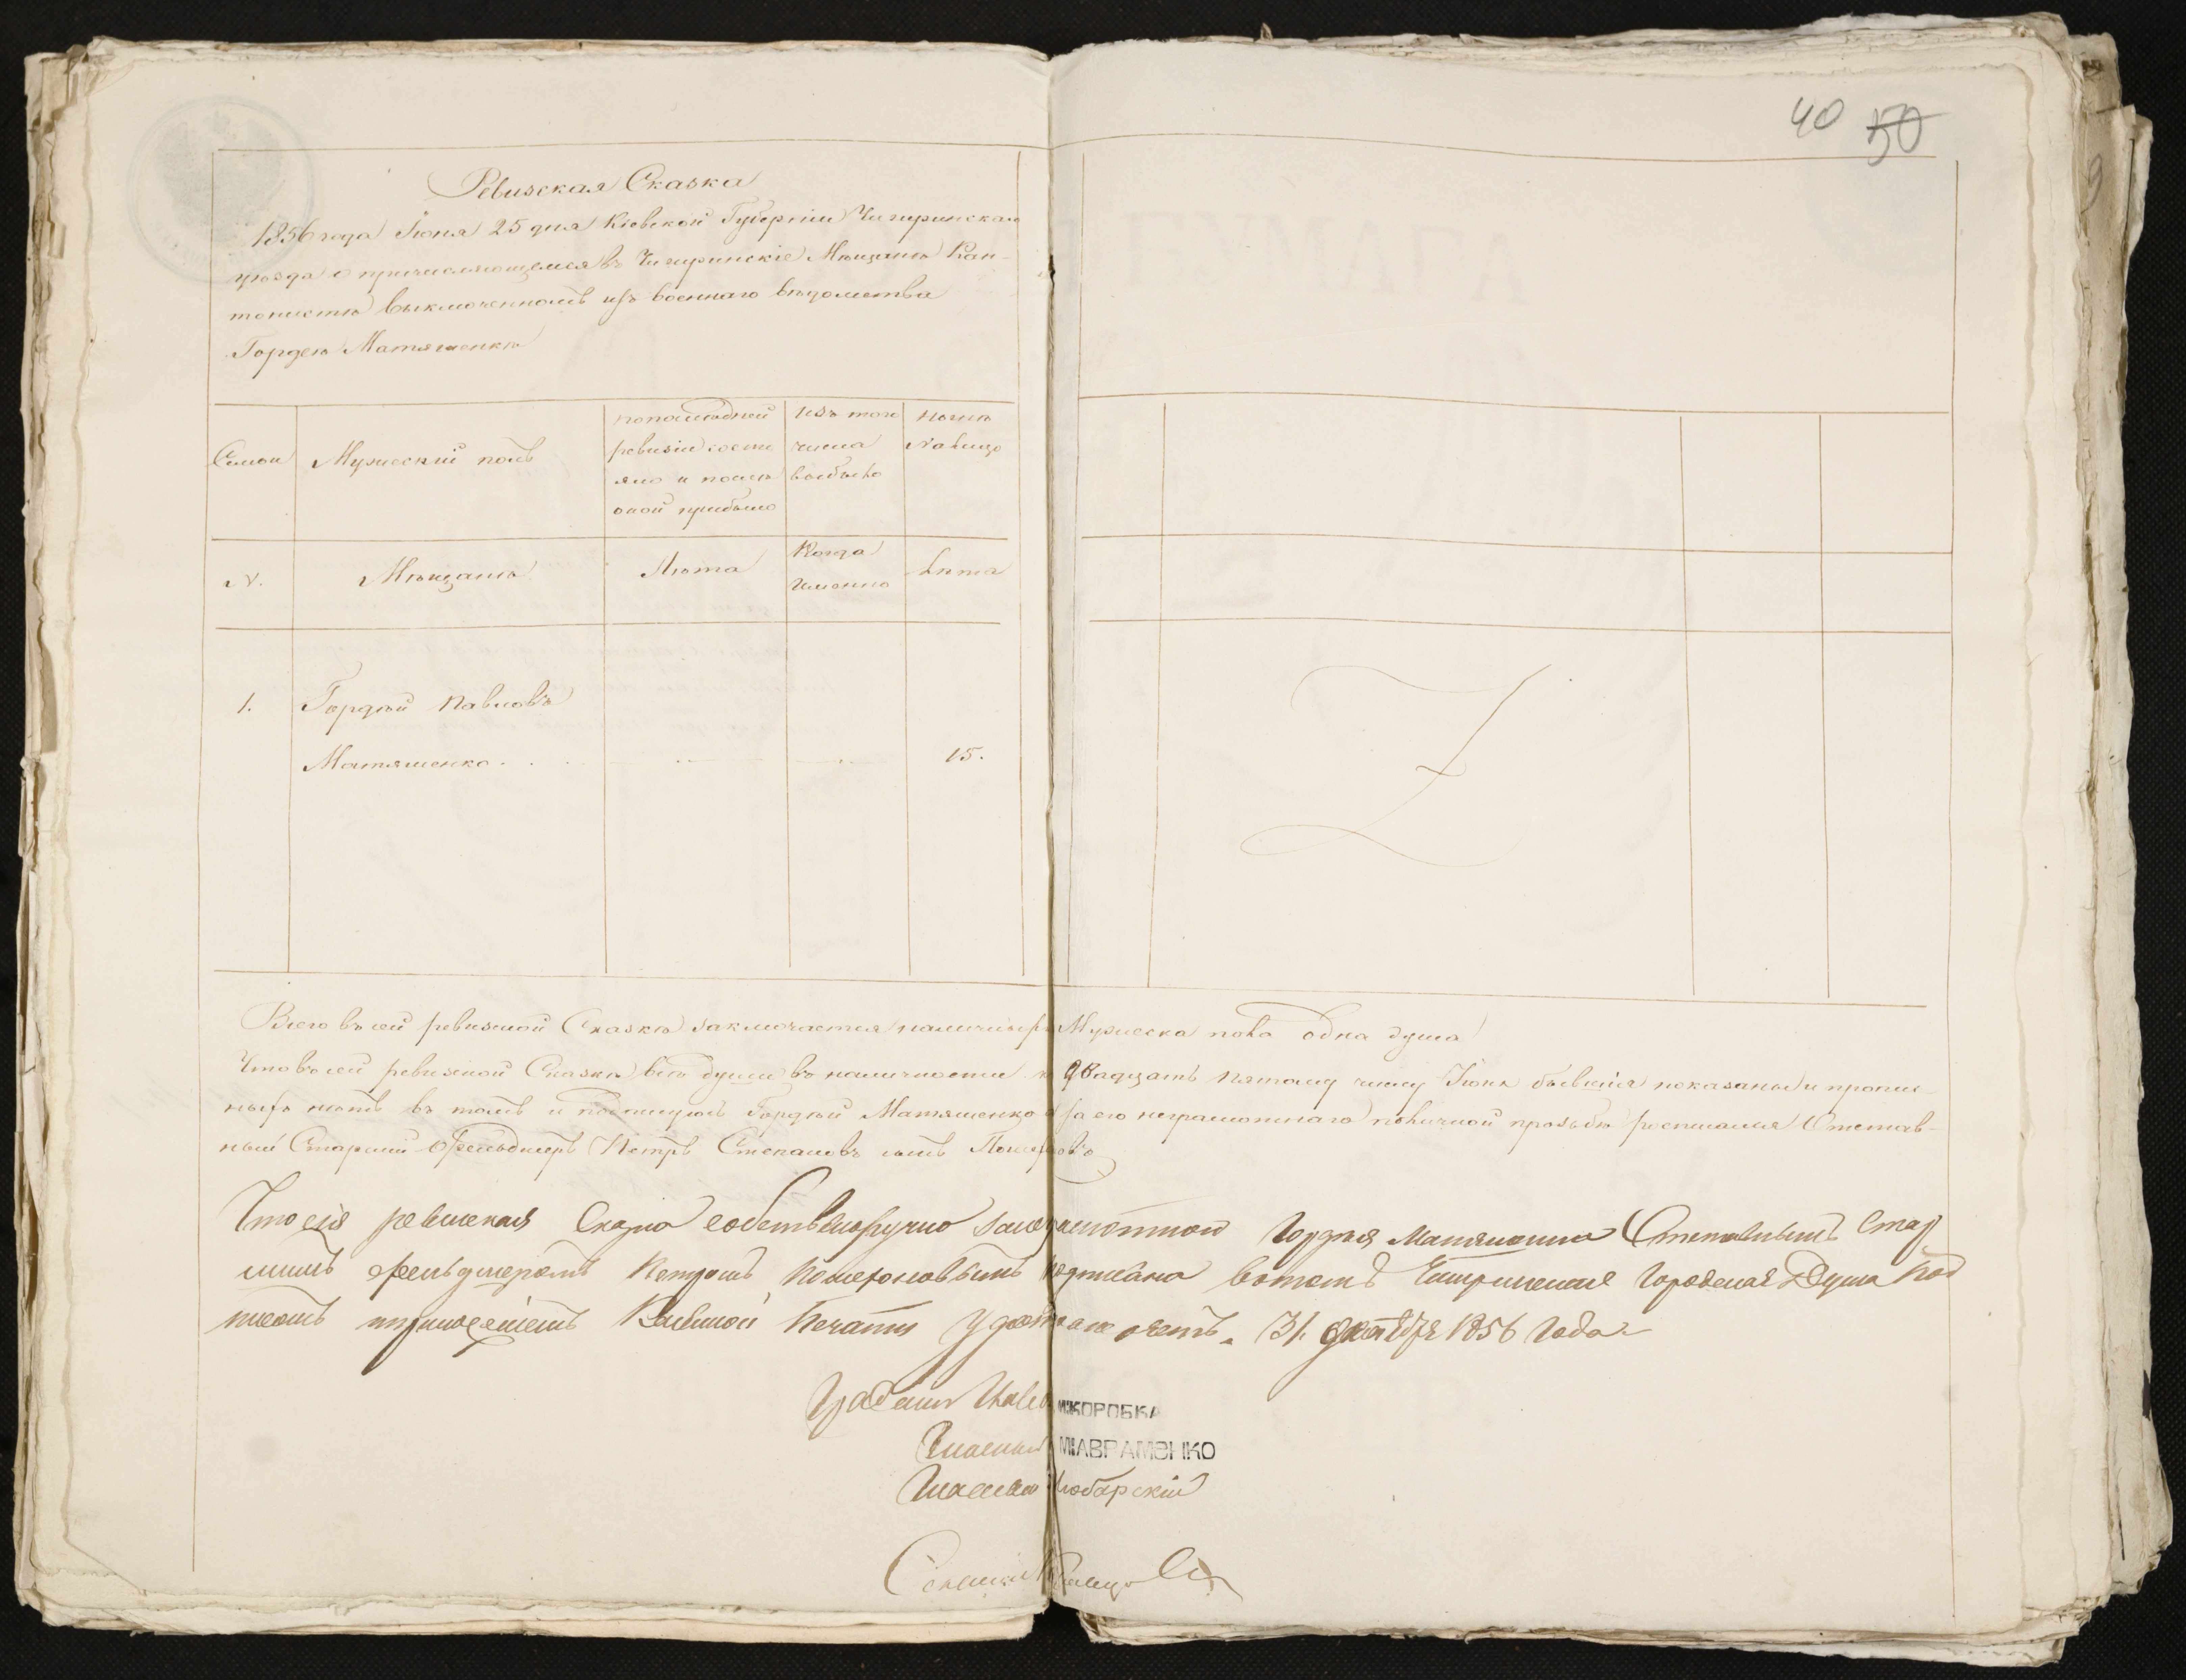 40 50
Ревизская Сказка
1856 года Іюня 25 дня Кіевской Губерніи Чигиринскаго
уѣзда о причисляющемся въ Чигиринскіе Мѣщане Кан-
тонистѣ выключенномъ изъ военнаго вѣдомства
Гордею Матяшенкѣ
Семьи
Мужескій полъ
по последней
ревизіи состо
яло и послѣ
оной прибыло
Изъ того
числа
выбыло
Нынѣ
на лицо
N.
Мѣщанѣ
Лѣта
Когда
имянно
Лѣта
1. Гордѣй Павловъ
Матяшенко . . . 15.
Всего въ сей ревизской Сказкѣ заключается наличныхъ Мужеска пола одна душа
Что въ сей ревизской Сказкѣ всѣ души въ наличности къ двадцать пятому числу Іюня бывшія показаны и пропис-
ныхъ нѣтъ въ томъ и подпишусь Гордѣй Матяшенко а за его неграмотнаго по личной прозьбѣ росписался Отстав-
ный Старшій Фельдшеръ Петръ Степановъ сынъ
Что сія ревизская Сказка собственноручно за неграмотной Гордѣя Матяшенка Отставнымъ Стар
шимъ Фельдшеромъ Петромъ подписана вотомъ Чигиринская Городская Дума под
писомъ и приложеніемъ Казенной Печати удостовѣряетъ. 31 октября 1856 года
Градский Глава И: КОРОБКА
Гласный М: АВРАМЕНКО
Гласный Любарскій